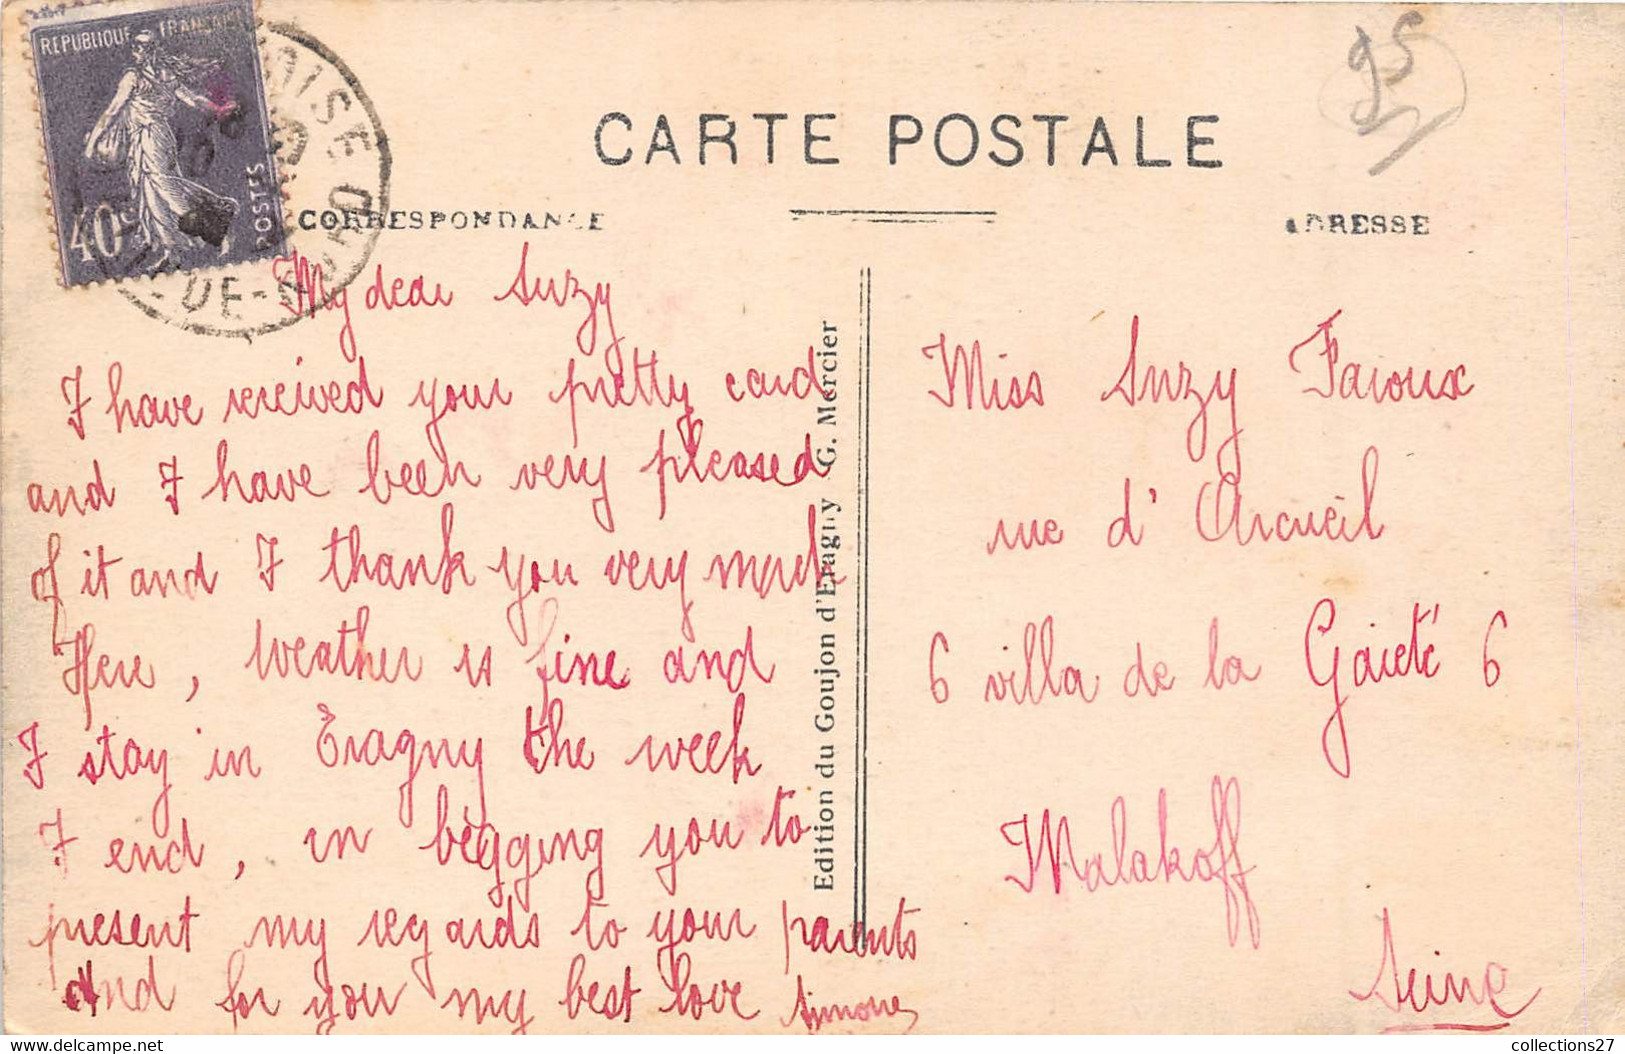 REPUBLIQUE FRANÇAISE
40c
POSTES
95
CARTE POSTALE
CORRESPONDANCE
ADRESSE
My dear Suzy
I have received your pretty card
and I have been very pleased
of it and I thank you very much
Here, weather is fine and
I stay in Éragny the week
I end, in begging you to
present my regards to your parents
and for you my best love Simone
Edition du Goujon d'Eragny G. Mercier
Miss Suzy Faroux
rue d'Arcueil
6 villa de la Gaieté 6
Malakoff
Seine
collections27